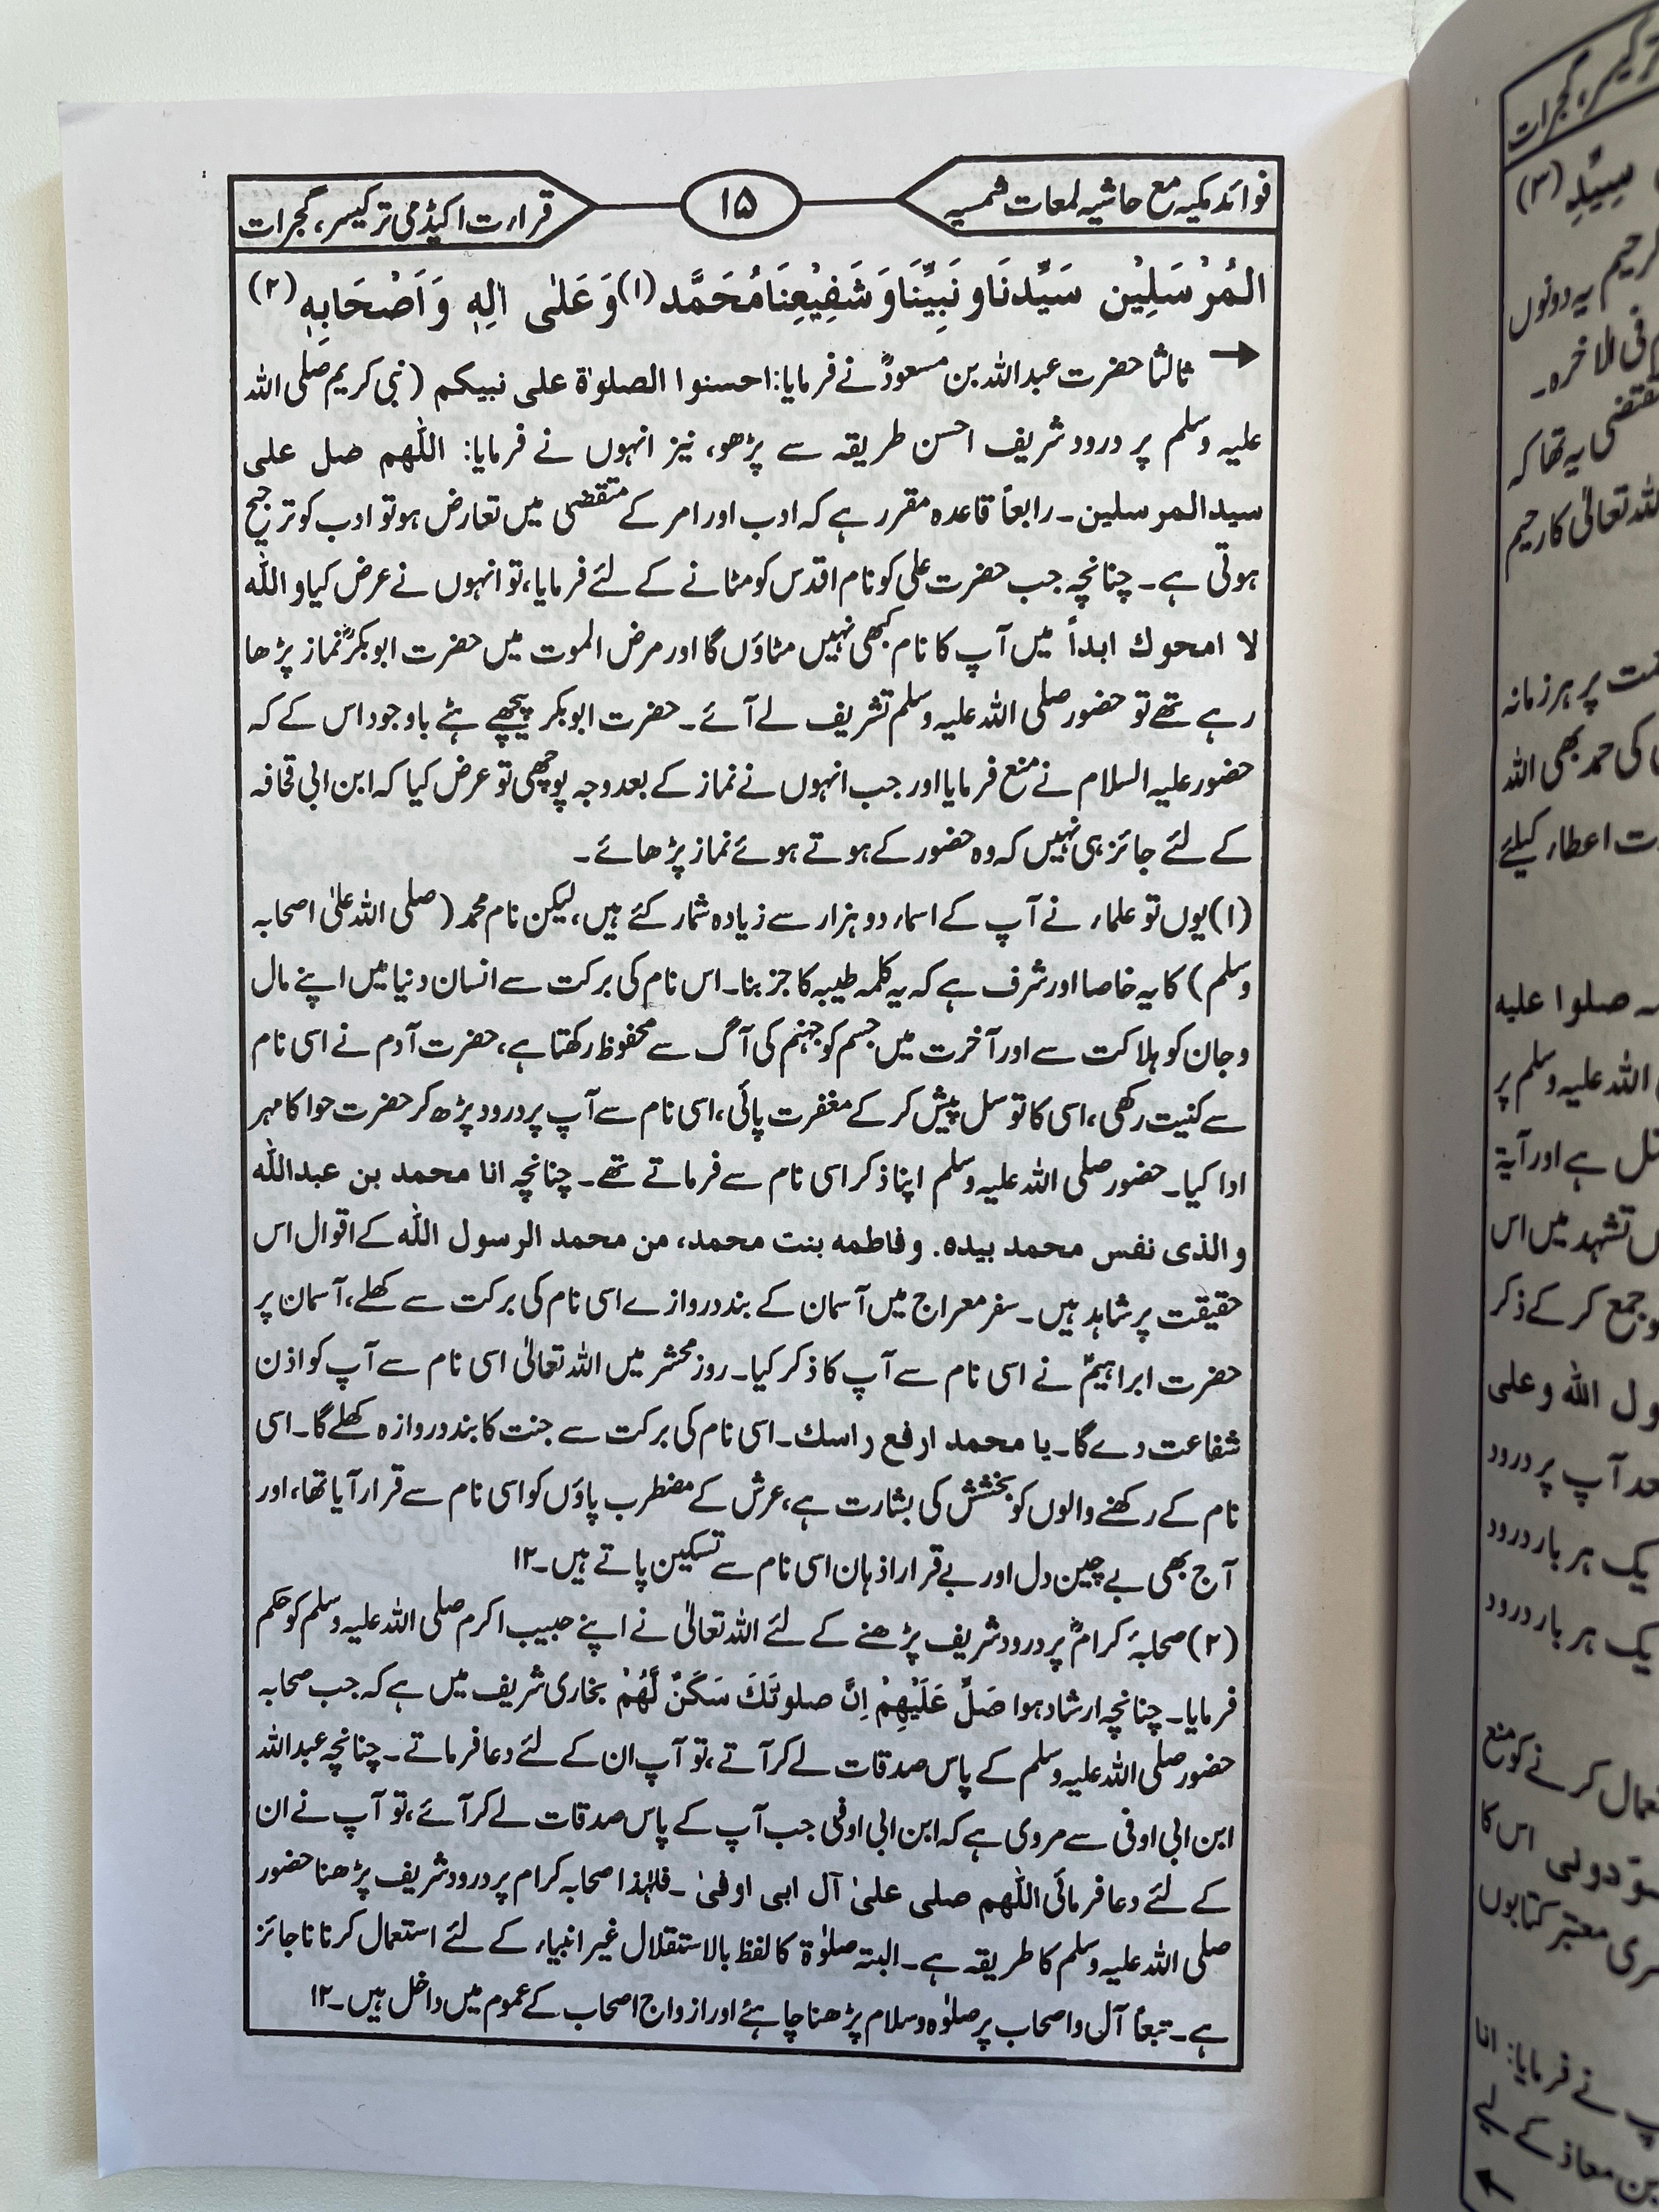 فوائد مکیہ مع حاشیہ لمعات شمسیہ
۱۵
قراءت اکیڈمی ترکیسر، گجرات
الْمُرْسَلِیْن سَیِّدِنَا وَنَبِیِّنَا وَ شَفِیْعِنَا مُحَمَّد (۱) وَ عَلٰی اٰلِهٖ وَ اَصْحَابِهٖ (۲)
ثالثا حضرت عبداللہ بن مسعودؓ نے فرمایا: احسنوا الصلوٰة علی نبیکم (نبی کریم صلی اللہ
علیہ وسلم پر درود شریف احسن طریقہ سے پڑھو، نیز انہوں نے فرمایا: اللّٰهم صل علی
سید المرسلین۔ رابعاً قاعدہ مقرر ہے کہ ادب اور امر کے متقضی میں تعارض ہو تو ادب کو ترجیح
ہوتی ہے۔ چنانچہ جب حضرت علی کو نام اقدس کو مٹانے کے لئے فرمایا، تو انہوں نے عرض کیا و اللّٰه
لا امحوك ابداً میں آپ کا نام کبھی نہیں مٹاؤں گا اور مرض الموت میں حضرت ابوبکرؓ نماز پڑھا
رہے تھے تو حضور صلی اللہ علیہ وسلم تشریف لے آئے۔ حضرت ابوبکر پیچھے ہٹے باوجود اس کے کہ
حضور علیہ السلام نے منع فرمایا اور جب انہوں نے نماز کے بعد وجہ پوچھی تو عرض کیا کہ ابن ابی قحافہ
کے لئے جائز ہی نہیں کہ وہ حضور کے ہوتے ہوئے نماز پڑھائے۔
(۱) یوں تو علماء نے آپ کے اسماء دو ہزار سے زیادہ شمار کئے ہیں، لیکن نام محمد (صلی اللہ علیٰ اصحابہ
وسلم) کا یہ خاصا اور شرف ہے کہ یہ کلمہ طیبہ کا جز بنا۔ اس نام کی برکت سے انسان دنیا میں اپنے مال
و جان کو ہلاکت سے اور آخرت میں جسم کو جہنم کی آگ سے محفوظ رکھتا ہے، حضرت آدم نے اسی نام
سے کنیت رکھی، اسی کا توسل پیش کر کے مغفرت پائی، اسی نام سے آپ پر درود پڑھ کر حضرت حوا کا مہر
ادا کیا۔ حضور صلی اللہ علیہ وسلم اپنا ذکر اسی نام سے فرماتے تھے۔ چنانچہ انا محمد بن عبداللّٰه
و الذی نفس محمد بیده. و فاطمه بنت محمد، من محمد الرسول اللّٰه کے اقوال اس
حقیقت پر شاہد ہیں۔ سفر معراج میں آسمان کے بند دروازے اسی نام کی برکت سے کھلے، آسمان پر
حضرت ابراہیمؑ نے اسی نام سے آپ کا ذکر کیا۔ روز محشر میں اللہ تعالیٰ اسی نام سے آپ کو اذن
شفاعت دے گا۔ یا محمد ارفع راسك۔ اسی نام کی برکت سے جنت کا بند دروازہ کھلے گا۔ اسی
نام کے رکھنے والوں کو بخشش کی بشارت ہے، عرش کے مضطرب پاؤں کو اسی نام سے قرار آیا تھا، اور
آج بھی بے چین دل اور بے قرار اذہان اسی نام سے تسکین پاتے ہیں۔۱۲
(۲) صحابۂ کرامؓ پر درود شریف پڑھنے کے لئے اللہ تعالیٰ نے اپنے حبیب اکرم صلی اللہ علیہ وسلم کو حکم
فرمایا۔ چنانچہ ارشاد ہوا صَلِّ عَلَیْهِمْ اِنَّ صلوتَكَ سَكَنٌ لَّهُمْ بخاری شریف میں ہے کہ جب صحابہ
حضور صلی اللہ علیہ وسلم کے پاس صدقات لے کر آتے، تو آپ ان کے لئے دعا فرماتے۔ چنانچہ عبداللہ
ابن ابی اوفی سے مروی ہے کہ ابن ابی اوفی جب آپ کے پاس صدقات لے کر آئے، تو آپ نے ان
کے لئے دعا فرمائی اللّٰهم صلی علیٰ آل ابی اوفیٰ ۔ فلہٰذا صحابہ کرام پر درود شریف پڑھنا حضور
صلی اللہ علیہ وسلم کا طریقہ ہے۔ البتہ صلوٰۃ کا لفظ بالاستقلال غیر انبیاء کے لئے استعمال کرنا ناجائز
ہے۔ تبعاً آل و اصحاب پر صلوٰہ و سلام پڑھنا چاہئے اور ازواج اصحاب کے عموم میں داخل ہیں۔۱۲
ترکیسر، گجرات
سیِّدِ (۳)
کریم یہ دونوں
فی الاخرہ۔
مقتضی یہ تھا کہ
اللہ تعالیٰ کا رحیم
پر ہر زمانہ
کی حمد بھی اللہ
اعطاء کیلئے
صلوا علیه
اللہ علیہ وسلم پر
ہے اور آیۃ
تشہد میں اس
جمع کر کے ذکر
اللّٰه و علی
آپ پر درود
یک ہر بار درود
یک ہر بار درود
کرنے کو منع
دونی اس کا
معتبر کتابوں
نے فرمایا: انا
معاذ کے لیے